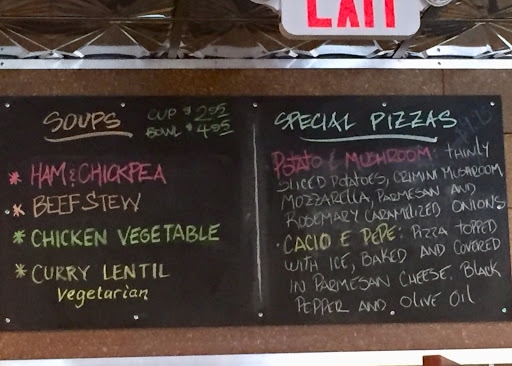 EXIT
SOUPS
CUP $2.95
BOWL $4.95
* HAM & CHICKPEA
* BEEF STEW
* CHICKEN VEGETABLE
* CURRY LENTIL
Vegetarian
SPECIAL PIZZAS
POTATO & MUSHROOM: THINLY
SLICED POTATOES, CRIMINI MUSHROOM,
MOZZARELLA, PARMESAN AND
ROSEMARY CARAMELIZED ONIONS
• CACIO E PEPE: PIZZA TOPPED
WITH ICE, BAKED AND COVERED
IN PARMESAN CHEESE. BLACK
PEPPER AND OLIVE OIL